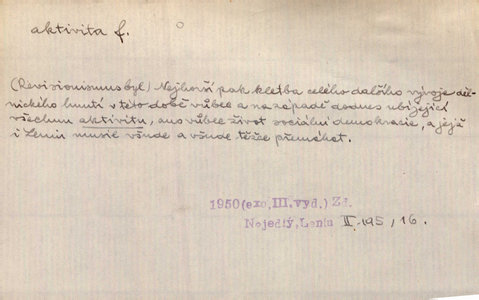 aktivita f.
(Revisionismus byl) Nejhorší pak kletba celého dalšího vývoje děl-
nického hnutí v této době vůbec a na západě dodnes ubíjející
všechnu aktivitu, ano vůbec život sociální demokracie, a jejž
i Lenin musil všude a všude těžce přemáhat.
1950(exc.III.vyd.) Zd.
Nejedlý, Lenin II, 195, 16.